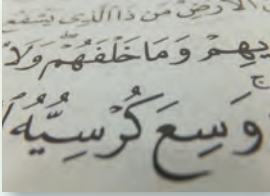 الأرض من ذا الذي يشفع
يهم وما خلفهم ولا
وسع كرسيه